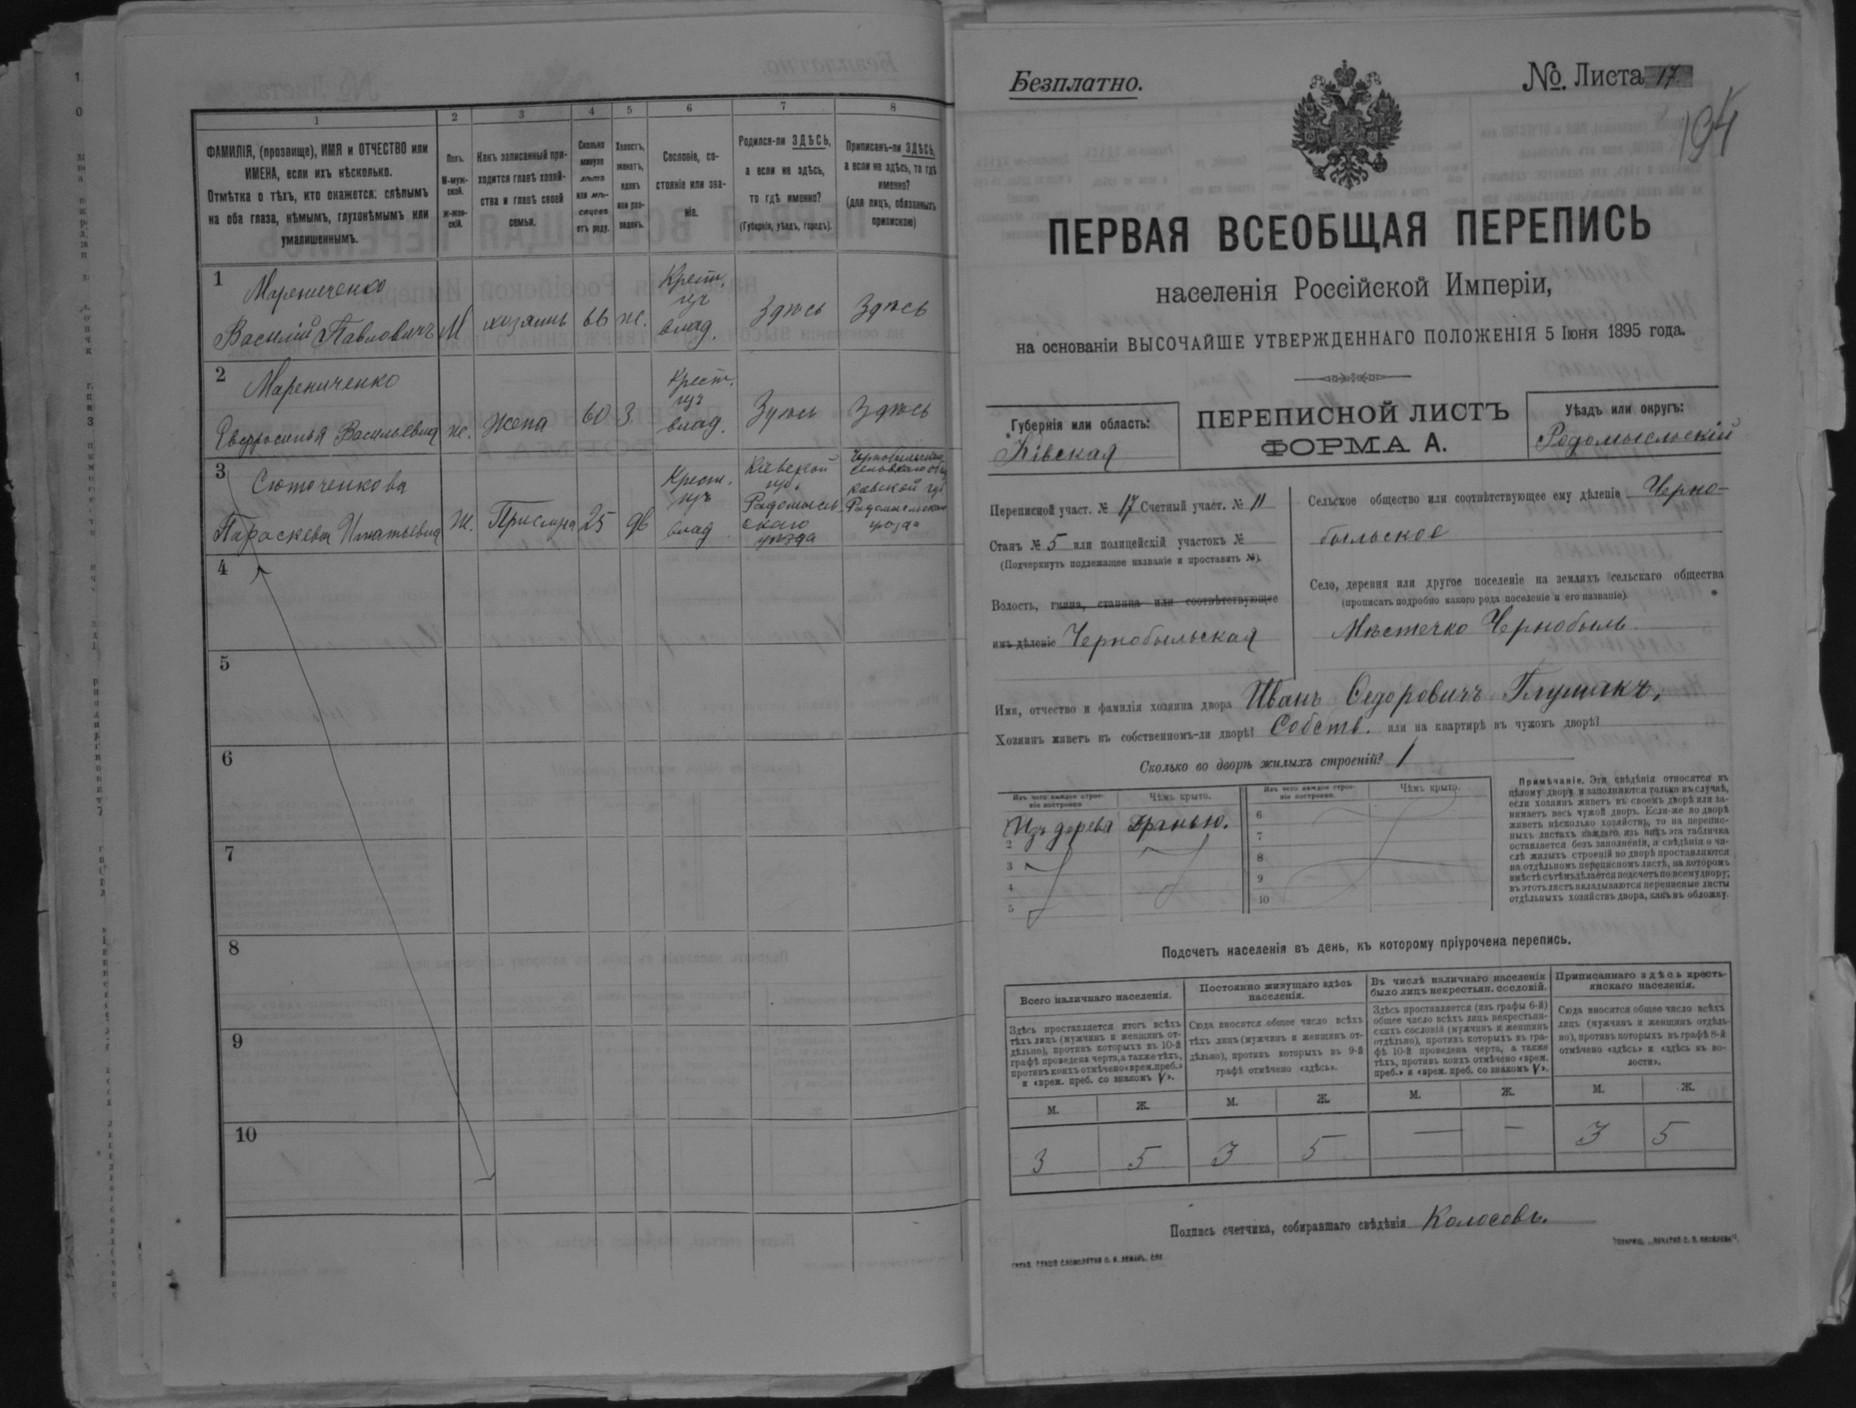 1 2 3 4 5 6 7 8
ФАМИЛІЯ, (прозвище), ИМЯ и ОТЧЕСТВО или
ИМЕНА, если ихъ нѣсколько.
Отмѣтка о тѣхъ, кто окажется: слѣпымъ
на оба глаза, нѣмымъ, глухонѣмымъ или
умалишеннымъ.
Полъ.
М-муж-
ской.
Ж-жен-
скій.
Какъ записанный при-
ходится главѣ хозяй-
ства и главѣ своей
семьи.
Сколько
минуло
лѣтъ
или мѣ-
сяцевъ
отъ роду.
Холостъ,
женатъ,
вдовъ
или раз-
веденъ.
Сословіе, со-
стояніе или зва-
ніе.
Родился-ли ЗДѢСЬ,
а если не здѣсь,
то гдѣ именно?
(Губернія, уѣздъ, городъ).
Приписанъ-ли ЗДѢСЬ,
а если не здѣсь, то гдѣ
именно?
(для лицъ, обязанныхъ
припискою)
1 Марениченко
Василій Павловичъ М хозяинъ 66 ж. Крест. изъ влад. Здѣсь Здѣсь
2 Марениченко
Евфросинья Васильевна ж. жена 60 З. Крест. изъ влад. Здѣсь Здѣсь
3 Сюточенкова
Параскева Игнатьевна Ж. Прислуга 25 дв Крест. изъ влад. Кіевской губ. Радомысльскаго уѣзда
4
5
6
7
8
9
10
Безплатно.
№. Листа 17
194
ПЕРВАЯ ВСЕОБЩАЯ ПЕРЕПИСЬ
населенія Россійской Имперіи,
на основаніи ВЫСОЧАЙШЕ УТВЕРЖДЕННАГО ПОЛОЖЕНІЯ 5 Іюня 1895 года.
Губернія или область:
Кіевская
ПЕРЕПИСНОЙ ЛИСТЪ
ФОРМА А.
Уѣздъ или округъ:
Радомысльскій
Переписной участ. № 17 Счетный участ. № 11
Станъ № 5 или полицейскій участокъ №
(Подчеркнуть подлежащее названіе и проставить №).
Волость, гмина, станица или соотвѣтствующее
имъ дѣленіе Чернобыльская
Сельское общество или соотвѣтствующее ему дѣленіе Черно-
быльское
Село, деревня или другое поселеніе на земляхъ сельскаго общества
(прописать подробно какого рода поселеніе и его названіе)
Мѣстечко Чернобыль
Имя, отчество и фамилія хозяина двора Иванъ Федоровичъ Глушакъ,
Хозяинъ живетъ въ собственномъ-ли дворѣ? Собств. или на квартирѣ въ чужомъ дворѣ?
Сколько во дворѣ жилыхъ строеній? 1
Изъ чего каждое строе-
ніе построено Чѣмъ крыто.
Изъ чего каждое строе-
ніе построено. Чѣмъ крыто.
Изъ дерева дранью.
2
3
4
5
6
7
8
9
10
Примѣчаніе. Эти свѣдѣнія относятся къ
цѣлому двору и заполняются только въ случаѣ,
если хозяинъ живетъ въ своемъ дворѣ или за-
нимаетъ весь чужой дворъ. Если-же во дворѣ
живетъ нѣсколько хозяйствъ, то на перепис-
ныхъ листахъ каждаго изъ нихъ эта табличка
оставляется безъ заполненія, а свѣдѣнія о чи-
слѣ жилыхъ строеній во дворѣ проставляются
на отдѣльномъ переписномъ листѣ, на которомъ
вмѣстѣ съ тѣмъ дѣлается подсчетъ по всему двору;
въ этотъ листъ вкладываются переписные листы
отдѣльныхъ хозяйствъ двора, какъ въ обложку.
Подсчетъ населенія въ день, къ которому пріурочена перепись.
Всего наличнаго населенія.
Здѣсь проставляется итогъ всѣхъ
тѣхъ лицъ (мужчинъ и женщинъ от-
дѣльно), противъ которыхъ въ 10-й
графѣ проведена черта, а также тѣхъ,
противъ коихъ отмѣчено «врем. преб.»
и «врем. преб. со знакомъ V».
Постоянно живущаго здѣсь
населенія.
Сюда вносится общее число всѣхъ
тѣхъ лицъ (мужчинъ и женщинъ от-
дѣльно), противъ которыхъ въ 9-й
графѣ отмѣчено «здѣсь».
Въ числѣ наличнаго населенія
было лицъ некрестьян. сословій.
Здѣсь проставляется (изъ графы 6-й)
общее число всѣхъ лицъ некрестьян-
скихъ сословій (мужчинъ и женщинъ
отдѣльно), противъ которыхъ въ гра-
фѣ 10-й проведена черта, а также
тѣхъ, противъ коихъ отмѣчено «врем.
преб.» и «врем. преб. со знакомъ V».
Приписаннаго здѣсь кресть-
янскаго населенія.
Сюда вносится общее число всѣхъ
лицъ (мужчинъ и женщинъ отдѣль-
но), противъ которыхъ въ графѣ 8-й
отмѣчено «здѣсь» и «здѣсь въ во-
лости».
М. Ж. М. Ж. М. Ж. М. Ж.
3 5 3 5 — — 3 5
Подпись счетчика, собиравшаго свѣдѣнія Колосовъ.